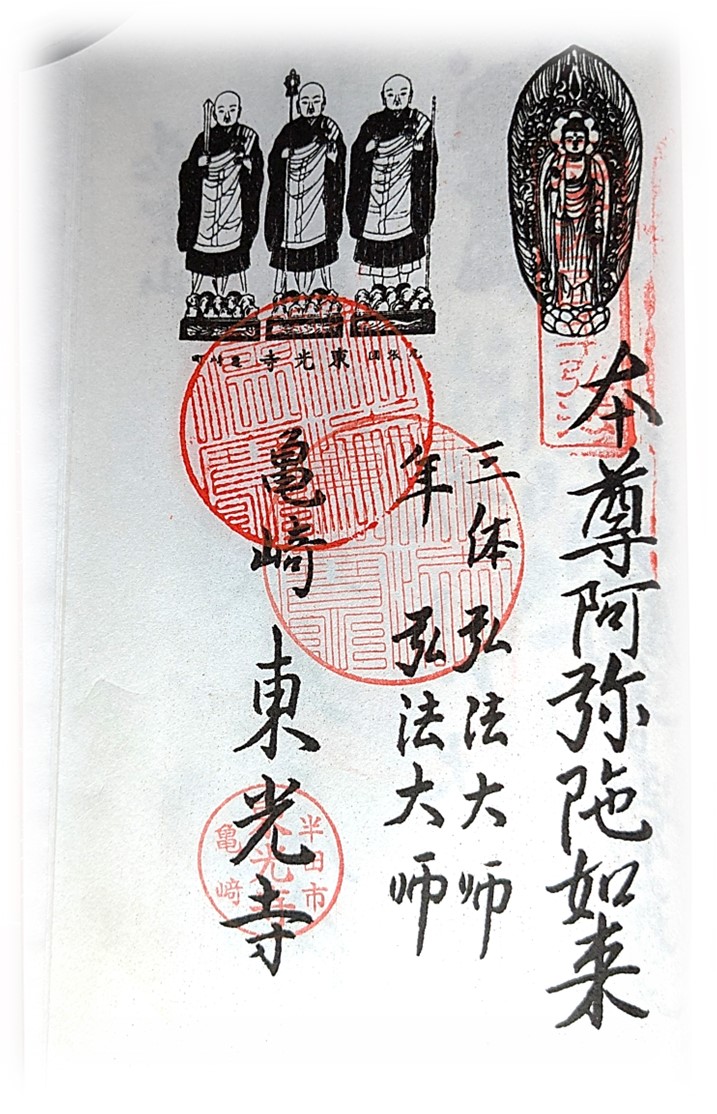 本尊阿弥陀如来
三体 弘法大师
年 弘法大师
亀﨑 東光寺
東光寺
半田市
東光寺
亀﨑